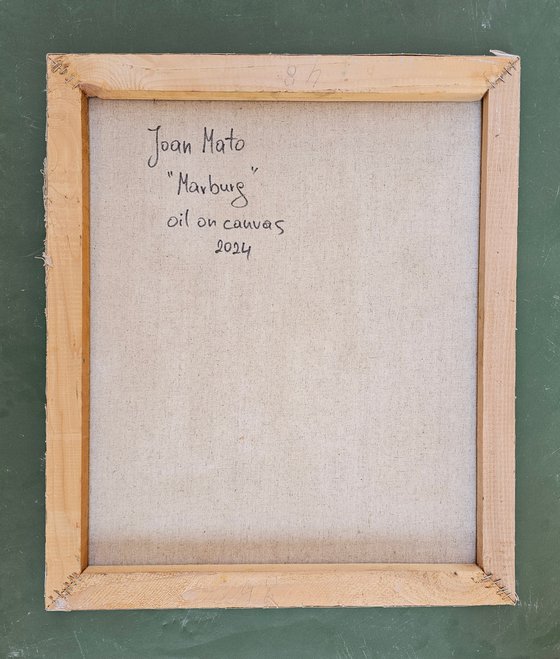 Joan Mato
"Marburg"
oil on canvas
2024